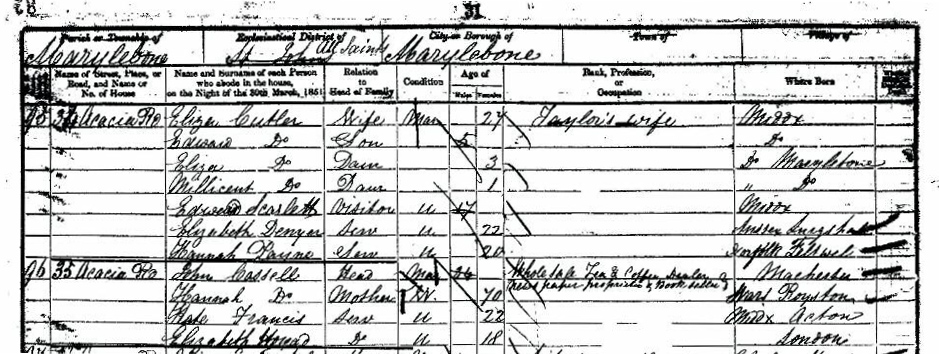 31
Parish or Township of Ecclesiastical District of City or Borough of Town of Village of
Marylebone St Johns All Saints Marylebone
Name of Street, Place, or Road, and Name or No. of House
Name and Surname of each Person who abode in the house, on the Night of the 30th March, 1851
Relation to Head of Family
Condition
Age of
Males Females
Rank, Profession, or Occupation
Where Born
95 34 Acacia Rd Eliza Cutler Wife Mar 27 Taylors wife Middx
Edward Do Son 5 Do
Eliza Do Daur 3 Do Marylebone
Millicent Do Daur 1 " Do
Edward Scarlett Visitor U 17 Middx
Elizabeth Denyer Serv U 22 Sussex
Hannah Serv U 20 Norfolk
96 35 Acacia Rd John Cassell Head Mar 36 Wholesale Tea & Coffee Dealer & Manchester
news paper proprietor & Book seller
Hannah Do Mother W. 70 Wars Royston
Kate Francis Serv U 22 Middx Acton
Elizabeth Do U 18 London